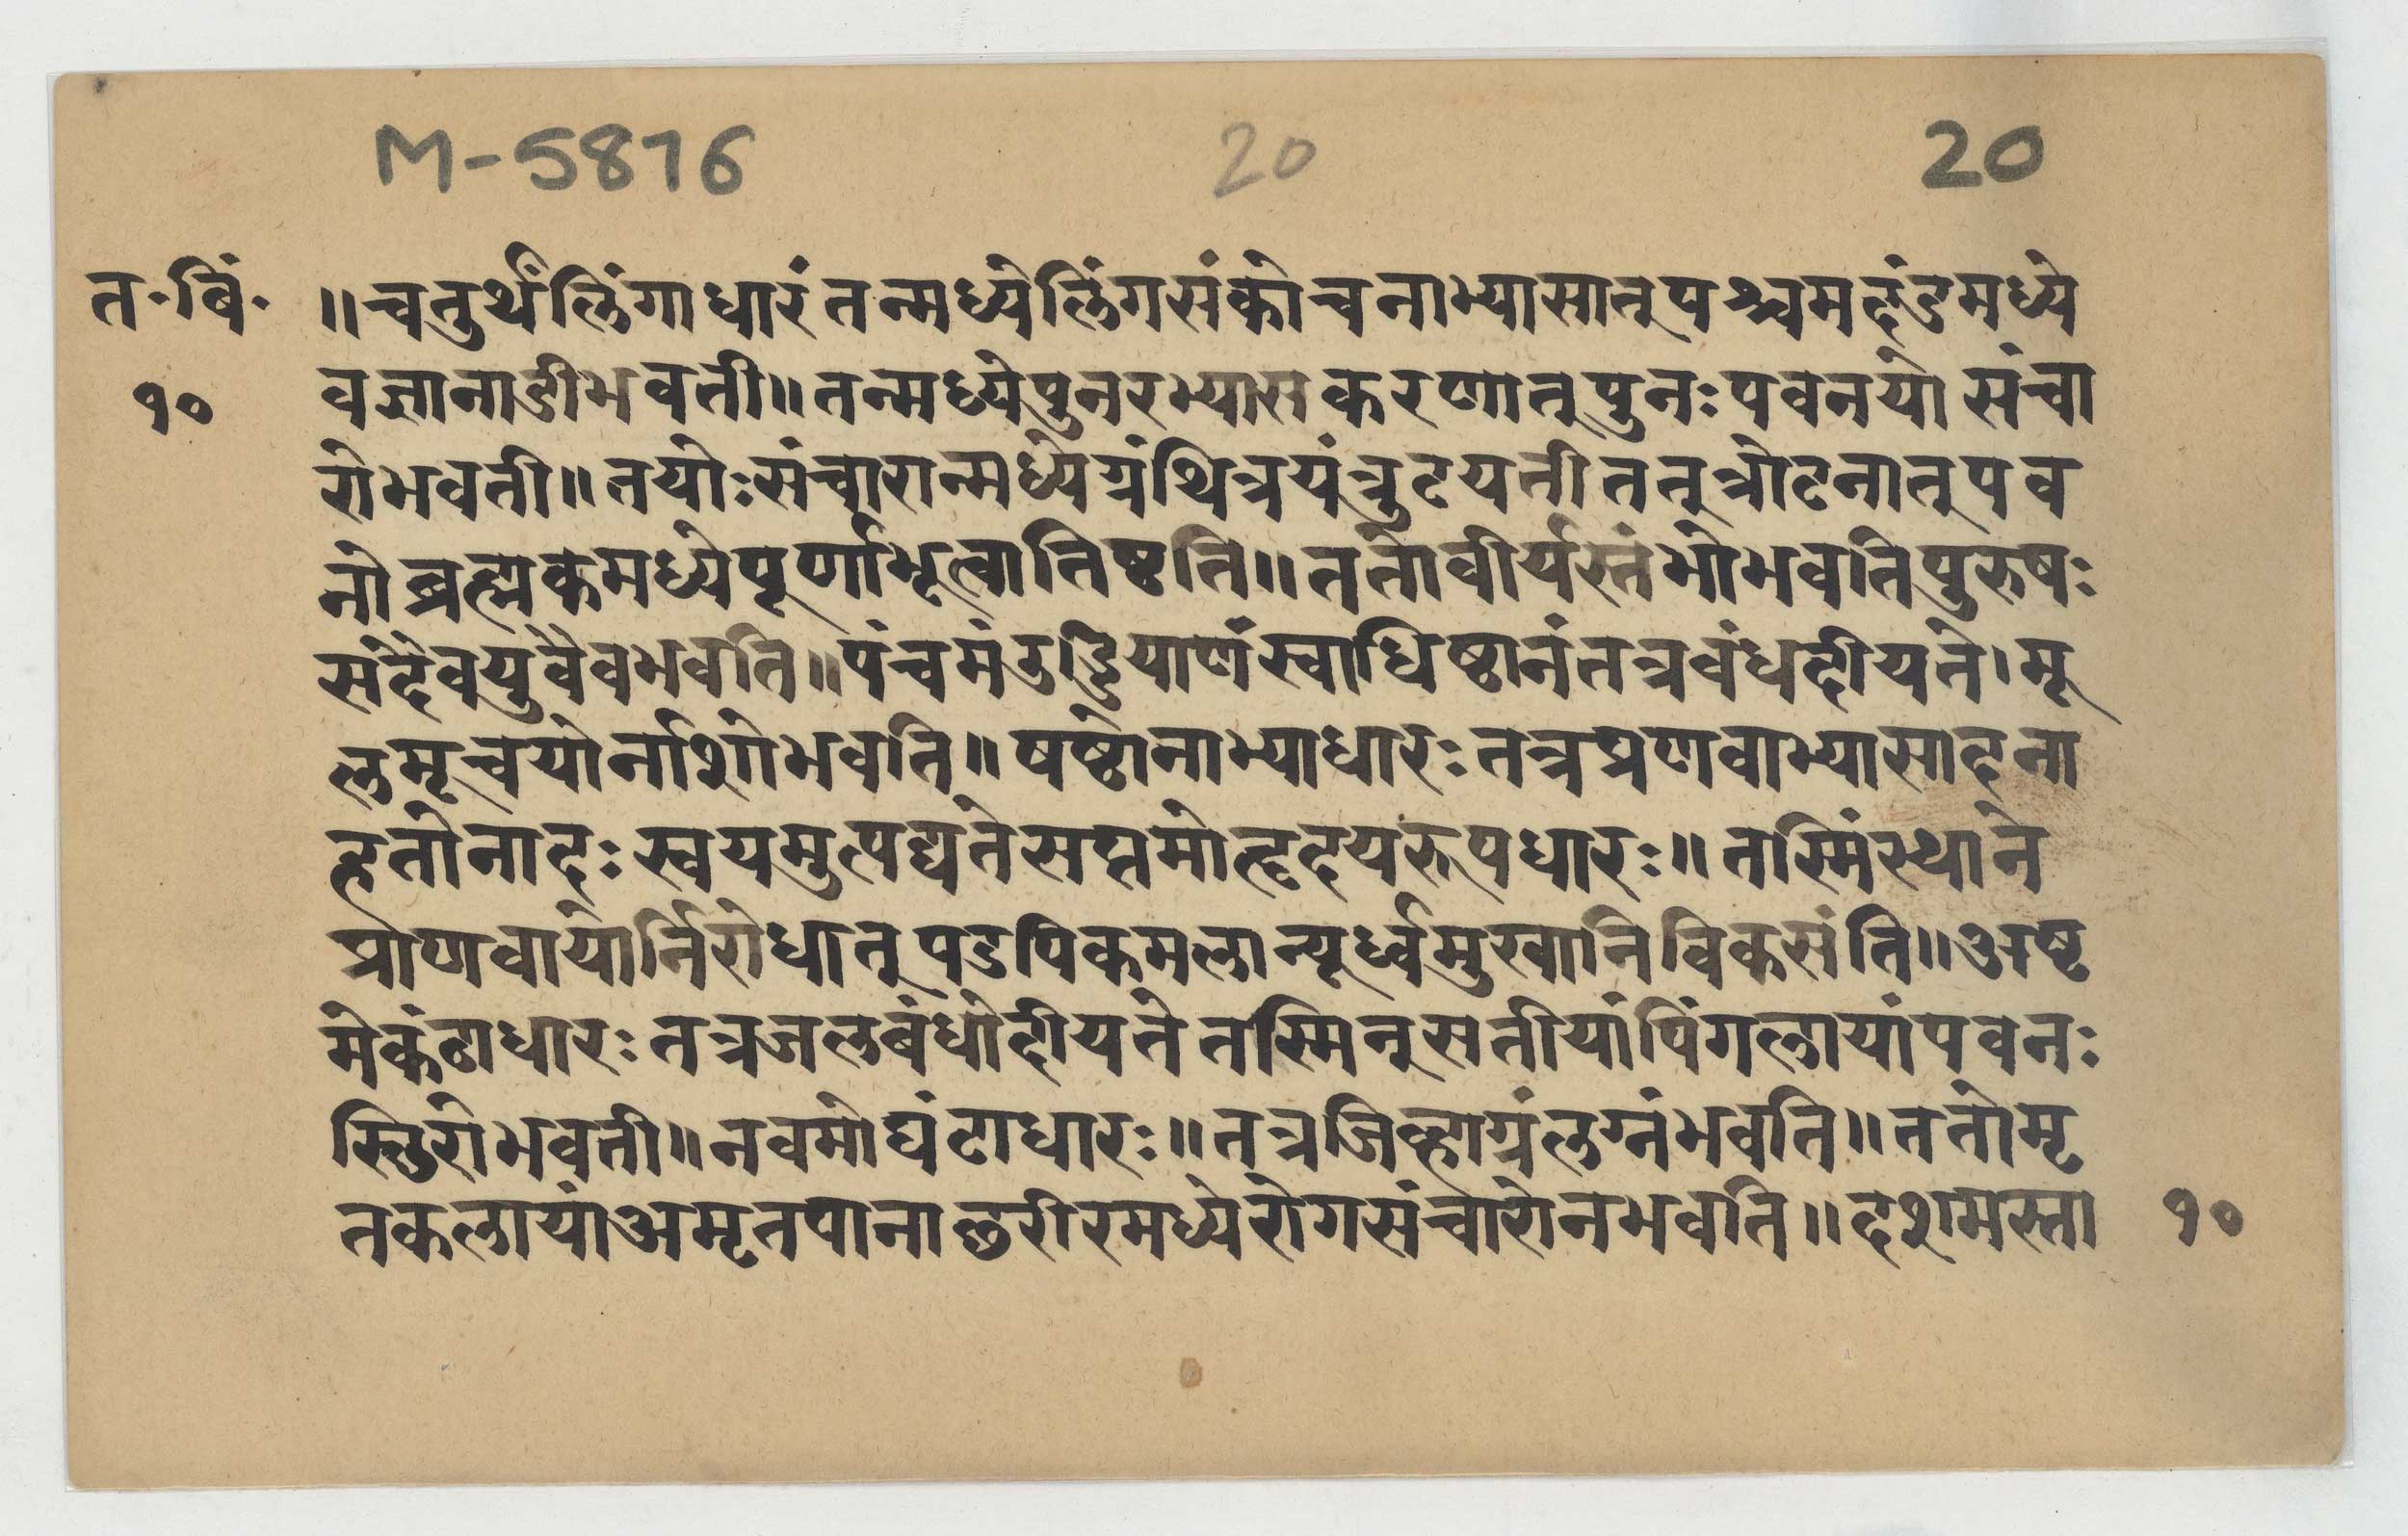 M-5876 20 20
त॰बिं॰ ॥चतुर्थंलिंगाधारंतन्मध्येलिंगसंकोचनाभ्यासात्पश्चमदंडमध्ये
१० वज्ञानाडीभवती॥तन्मध्येपुनरभ्यासकरणात्पुनःपवनयो संचा
रोभवती॥तयोःसंचारान्मध्येग्रंथित्रयंत्रुटयतीतत्त्रोटनात्पव
नो ब्रह्मकमध्येपूर्णाभूत्वातिष्टति॥ततोवीर्यस्तंभोभवतिपुरुषः
संदैवयुवैवभवति॥पंचमंउड्डियाणंस्वाधिष्ठानंतत्रबंधदीयते।मू
लमूत्रयोर्नाशोभवति॥षष्ठोनाभ्याधारःतत्रप्रणवाभ्यासादना
हतोनादःस्वयमुत्पद्यतेसप्तमोहृदयरूपधारः॥तस्मिंस्थाने
प्राणवायोर्निरोधात् षडपिकमलान्यूर्ध्वमुखानिविकसंति॥अष्ट
मेकंठाधारःतत्रजलबंधोदीयतेतस्मिन्सतीयांपिंगलायांपवनः
स्छिरोभवती॥नवमोघंटाधारः॥तत्रजिव्हाग्रंलग्नंभवति॥ततोमृ
तकलायांअमृतपानाछरीरमध्येरोगसंचारोनभवति॥दशमस्ता १०